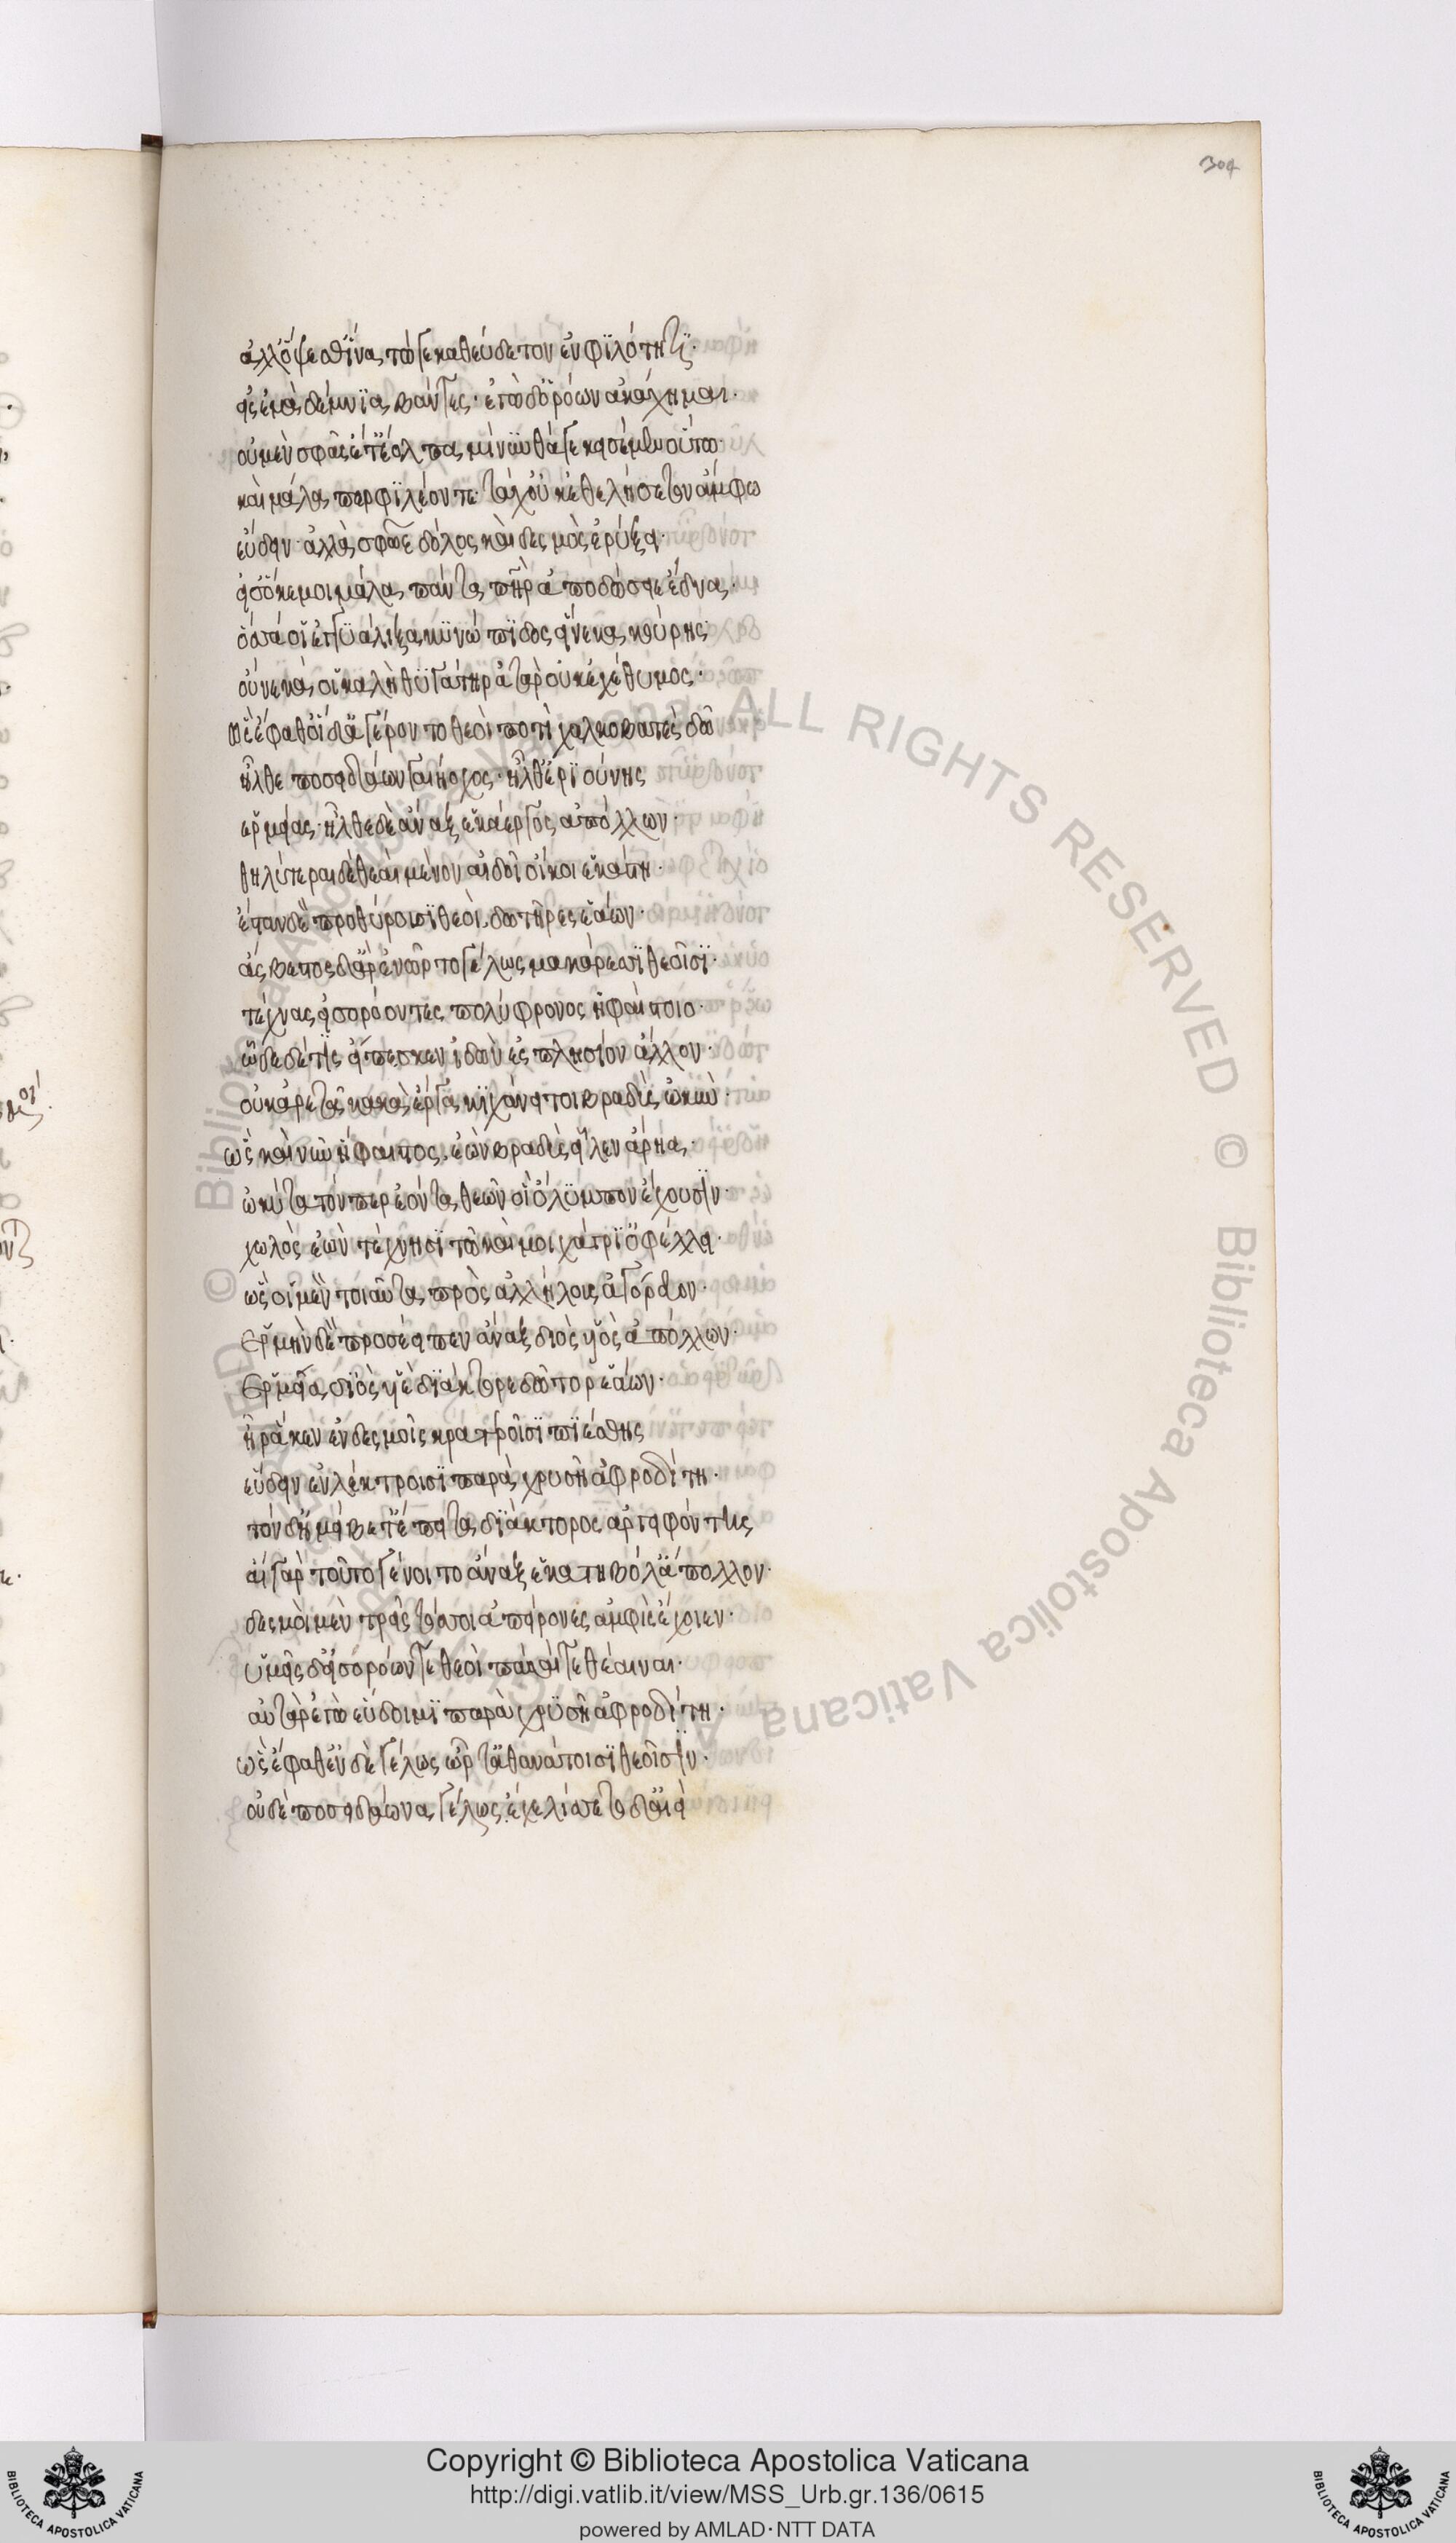 304
ἀλλ' ὄψεσθ' ἵνα τώ γε καθεύδετον ἐν φιλότητι·
εἰς ἐμὰ δέμνια βάντες· ἐγὼ δ' ὁρόων ἀκάχημαι·
οὐ μὲν σφᾶς ἔτ' ἔολπα μίνυνθά γε κεισέμεν οὕτω·
καὶ μάλα περ φιλέοντε· τάχ' οὐκ ἐθελήσετον ἄμφω
εὕδειν· ἀλλὰ σφῶε δόλος καὶ δεσμὸς ἐρύξει·
εἰσόκε μοι μάλα πάντα πατὴρ ἀποδώσει ἔεδνα·
ὅσσά οἱ ἐγγυάλιξα κυνώπιδος εἵνεκα κούρης·
οὕνεκά οἱ καλὴ θυγάτηρ ἀτὰρ οὐκ ἐχέθυμος·
ὣς ἔφαθ' οἱ δ' ἀγέροντο θεοὶ ποτὶ χαλκοβατὲς δῶ
ἦλθε ποσειδάων γαιήοχος· ἦλθ' ἐριούνης
ἑρμείας· ἦλθε δὲ ἄναξ ἑκάεργος ἀπόλλων·
θηλύτεραι δὲ θεαὶ μένον αἰδοῖ οἴκοι ἑκάστη·
ἔσταν δ' ἐν προθύροισι θεοὶ δωτῆρες ἑάων·
ἄσβεστος δ' ἄρ' ἐνῶρτο γέλως μακάρεσσι θεοῖσι·
τέχνας εἰσορόοντες πολύφρονος ἡφαίστοιο·
ὧδε δέ τις εἴπεσκεν ἰδὼν ἐς πλησίον ἄλλον·
οὐκ ἀρετᾷ κακὰ ἔργα κιχάνει τοι βραδὺς ὠκὺν·
ὡς καὶ νῦν ἥφαιστος ἐὼν βραδὺς εἷλεν ἄρηα·
ὠκύτατόν περ ἐόντα θεῶν οἳ ὄλυμπον ἔχουσιν·
χωλὸς ἐὼν τέχνῃσι τὸ καὶ μοιχάγρι' ὀφέλλει·
ὣς οἱ μὲν τοιαῦτα πρὸς ἀλλήλους ἀγόρευον·
Ἑρμῆν δὲ προσέειπεν ἄναξ διὸς υἱὸς ἀπόλλων·
Ἑρμεία διὸς υἱὲ διάκτορε δῶτορ ἑάων·
ἦ ῥά κεν ἐν δεσμοῖς κρατεροῖσι πιεσθεὶς
εὕδειν ἐν λέκτροισι παρὰ χρυσῇ ἀφροδίτῃ·
τὸν δ' ἠμείβετ' ἔπειτα διάκτορος ἀργειφόντης
αἲ γὰρ τοῦτο γένοιτο ἄναξ ἑκατηβόλ' ἄπολλον·
δεσμοὶ μὲν τρὶς τόσσοι ἀπείρονες ἀμφὶς ἔχοιεν·
ὑμεῖς δ' εἰσορόῳτε θεοὶ πᾶσαί τε θέαιναι·
αὐτὰρ ἐγὼν εὕδοιμι παρὰ χρυσῇ ἀφροδίτῃ·
ὣς ἔφατ' ἐν δὲ γέλως ὦρτ' ἀθανάτοισι θεοῖσιν·
οὐδὲ ποσειδάωνα γέλως ἔχε λίσσετο δ' αἰεὶ
Copyright © Biblioteca Apostolica Vaticana
http://digi.vatlib.it/view/MSS_Urb.gr.136/0615
powered by AMLAD·NTT DATA